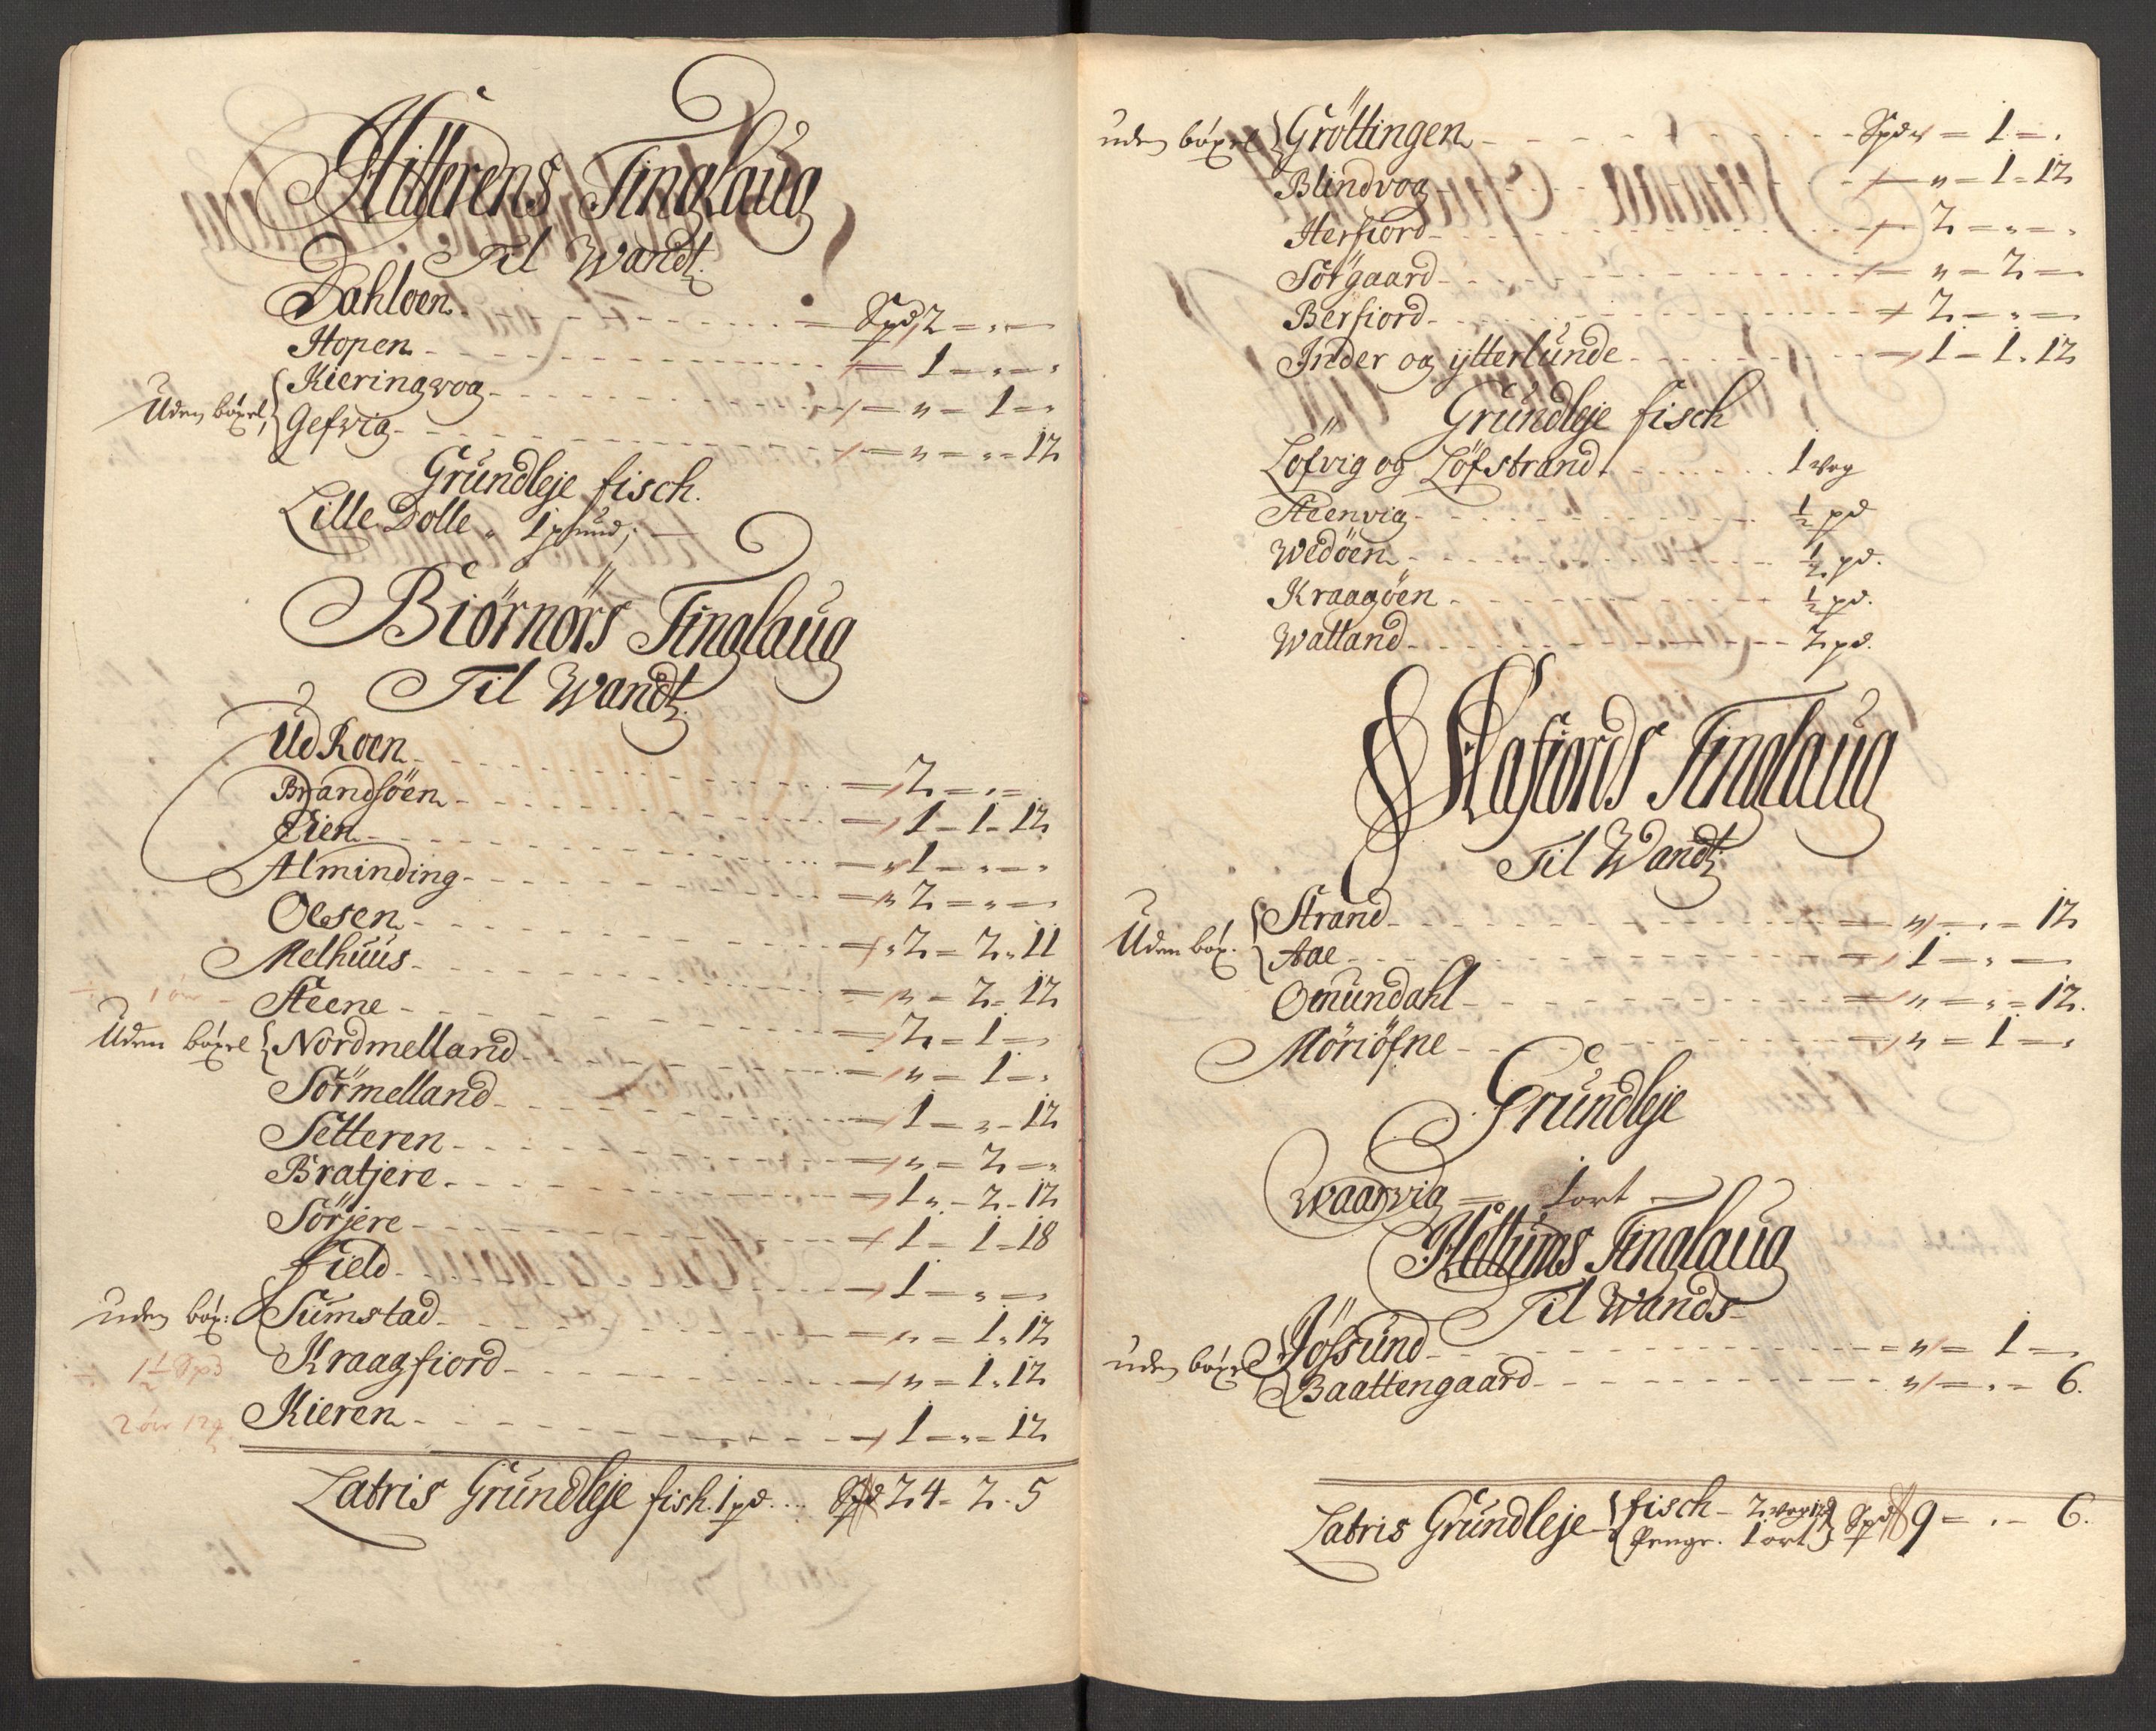 Hitterens Tinglaug
Til Wandt.
Dahloen - - - Spd 2 = „ =
Hopen - - - 1 = „ = „
Uden böxel, { Kieringvog - - - „ = 1 = „
Gefvig - - - „ = „ = 12
Grundleje fisch.
Lille Dolle „ 1 pfund;
Biörnörs Tinglaug
Til Wandt.
Ud Roen - - - 2 = „ =
Brandsöen - - - 1 = 1 = 12
Eien - - - 1 = „ = „
Alminding - - - 2 = „ =
Oesen - - - 2 = 2 „ 11
Melhuus - - - „ = 2 = 12
1 ör - Steene - - - 2 = 1 =
Uden böxel { Nordmelland - - - „ = 1 = „
Sörmelland - - - 1 = „ = 12
Setteren - - - „ = 2 = „
Bratjere - - - 1 „ = 2 = 12
Sörjere - - - 1 = 1 = 18
Field - - - 1 = „ =
uden böx: Sumstad - - - „ = 1 „ 12
1½ Spd Kraagfiord - - - „ = 1 „ 12
2 ör 12 Kieren - - - 1 = „ = 12
Latris Grundleje fish. 1 pd. . . . Spd 24 = 2 . 5
uden böxel } Gröttingen - - - Spd „ = 1 = „
Blindvog - - - „ = 1 = 12
Herfiord - - - 2 = „ = „
Sörgaard - - - „ = 2 =
Berfiord - - - 2 = „ =
Inder og ytterlunde - - - 1 = 1 „ 12
Grundleje fisch
Löfvig og Löfstrand - - - 1 vog
Steenvig - - - ½ pd
Wedöen - - - ½ pd.
Kraagöen - - - ½ pd.
Watland - - - 2 pd.
Stafiords Tinglaug
Til Wandt.
Uden böx. { Strand - - - „ = „ = 12
Aae - - - 1 = „ =
Omundahl - - - „ = „ = 12.
Möriöfne - - - „ = 1 = „
Grundleje
Waarvig = 1 ort
Til Wands
uden böxel { Jössund - - - „ = 1 =
Baattengaard - - - „ = „ = 6.
Latris Grundleje { fisch - 2 vog
Penge. 1 ort } Spd 9 = „ = 6.